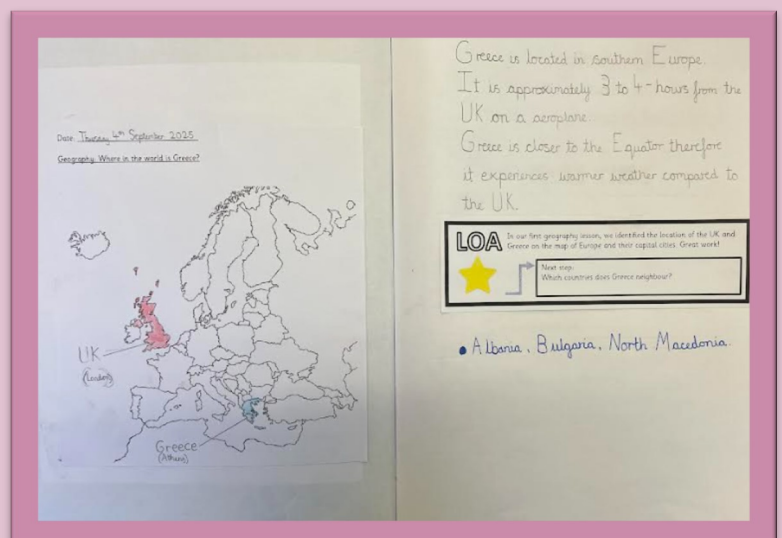 Date: Thursday 4th September 2025
Geography: Where in the world is Greece?
UK
(London)
Greece
(Athens)
Greece is located in southern Europe.
It is approximately 3 to 4-hours from the
UK on a aeroplane.
Greece is closer to the Equator therefore
it experiences warmer weather compared to
the UK.
LOA
In our first geography lesson, we identified the location of the UK and
Greece on the map of Europe and their capital cities. Great work!
Next step:
Which countries does Greece neighbour?
• Albania, Bulgaria, North Macedonia.